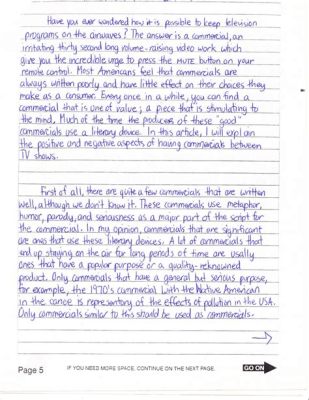 Have you ever wondered how it is possible to keep television
programs on the airwaves? The answer is a commercial, an
irritating thirty second long volume-raising video work which
give you the incredible urge to press the MUTE button on your
remote control. Most Americans feel that commercials are
always written poorly and have little effect on their choices they
make as a consumer. Every once in a while, you can find a
commercial that is one of value; a piece that is stimulating to
the mind. Much of the time the producers of these "good"
commercials use a literary device. In this article, I will explain
the positive and negative aspects of having commercials between
TV shows.
First of all, there are quite a few commercials that are written
well, although we don't know it. These commercials use metaphor,
humor, parody, and seriousness as a major part of the script for
the commercial. In my opinion, commercials that are significant
are ones that use these literary devices. A lot of commercials that
end up staying on the air for long periods of time are usually
ones that have a popular purpose or a quality-reknowned
product. Only commercials that have a general but serious purpose,
for example, the 1970's commercial with the Native American
in the canoe is representory of the effects of pollution in the USA.
Only commercials similar to this should be used as commercials.
→
Page 5 IF YOU NEED MORE SPACE, CONTINUE ON THE NEXT PAGE. GO ON